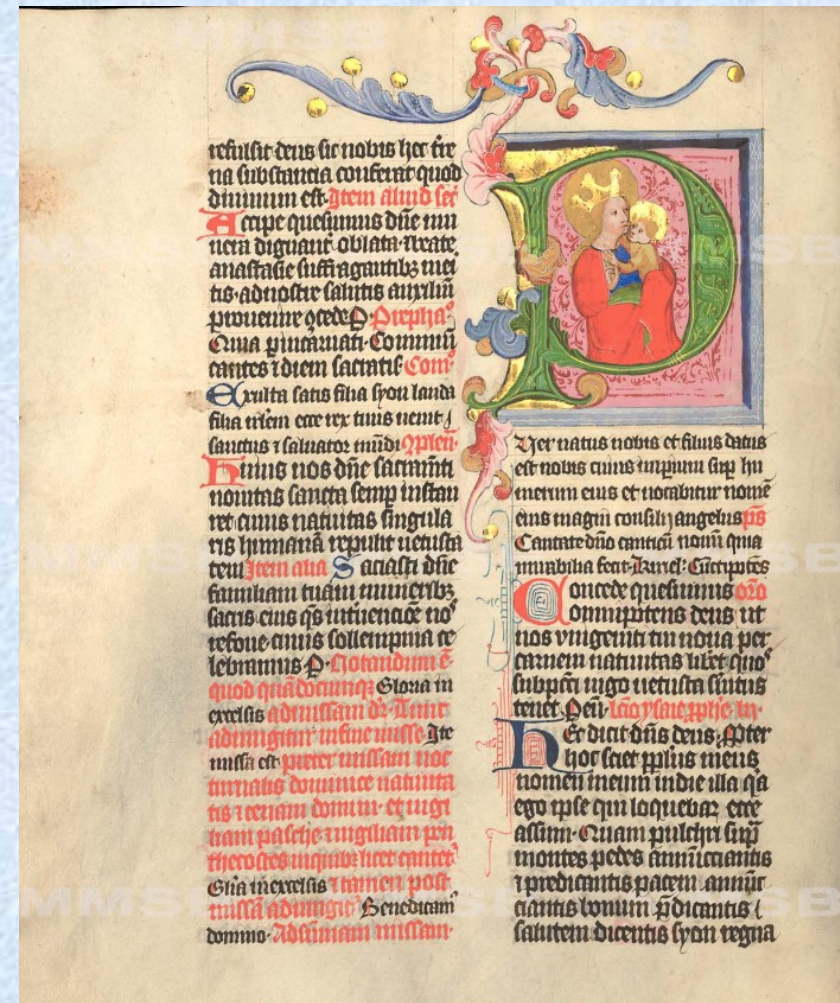 refulsit deus sic nobis hec tre
na substancia conferat quod
diuinum est. Item aliud scr̄
Accipe quesumus dn̄e mu
nera dignant̓ oblata ⁊ beate
anastasie suffragantibꝫ mei
tis ad nostre salutis auxiliū
prouenire ꝯcede P. Prepha
Quia p incarnati Commūi
cantes ⁊ diem sacratis. Com̄
Exulta satis filia syon lauda
filia irl̄em ecce rex tuus uenit
sanctus ⁊ saluator mūdi ꝯplen̄
Huius nos dn̄e sacramti
nouitas sancta semp instau
ret cuius natiuitas singula
ris humanā repulit uetusta
tem Item alia Saciasti dn̄e
familiam tuam muneribꝫ
sacris eius qs̄ intuencōe no
refoue cuius sollempnia ce
lebramus P. Notandum ē
quod quādocumqꝫ Gloria in
excelsis ad missam dr̄ Tunc
adiungitur in fine misse Ite
missa est preter missam noc
turnalis dominice natiuita
tis ⁊ cenam domini et uigi
liam pasche ⁊ uigiliam pen
thecostes in quibꝫ licet cantet̓
Glīa in excelsis ⁊ tamen post
missā adiungit̓ Benedicam
domino. Ad sūmam missam
P
Uer natus nobis et filius datus
est nobis cuius imperium sup hu
merum eius et uocabitur nomē
eius magni consilij angelus ps̄
Cantate dn̄o canticū nouū quia
mirabilia fecit. Kyriel. Cūctipotēs
Concede quesumus oro
omnipotens deus ut
nos vnigeniti tui noua per
carnem natiuitas libet quo
sub pcti iugo uetusta suitus
tenet. P eū. lcō ysaie pphe.
Hec dicit dn̄s deus. Ppter
hoc sciet pplus meus
nomen meum in die illa q̄a
ego ipse qui loquebar ecce
assum. Quam pulchri sup
montes pedes annūcciantis
⁊ predicantis pacem. annūc
ciantis bonum pdicantis
salutem dicentis syon regna
MMSB